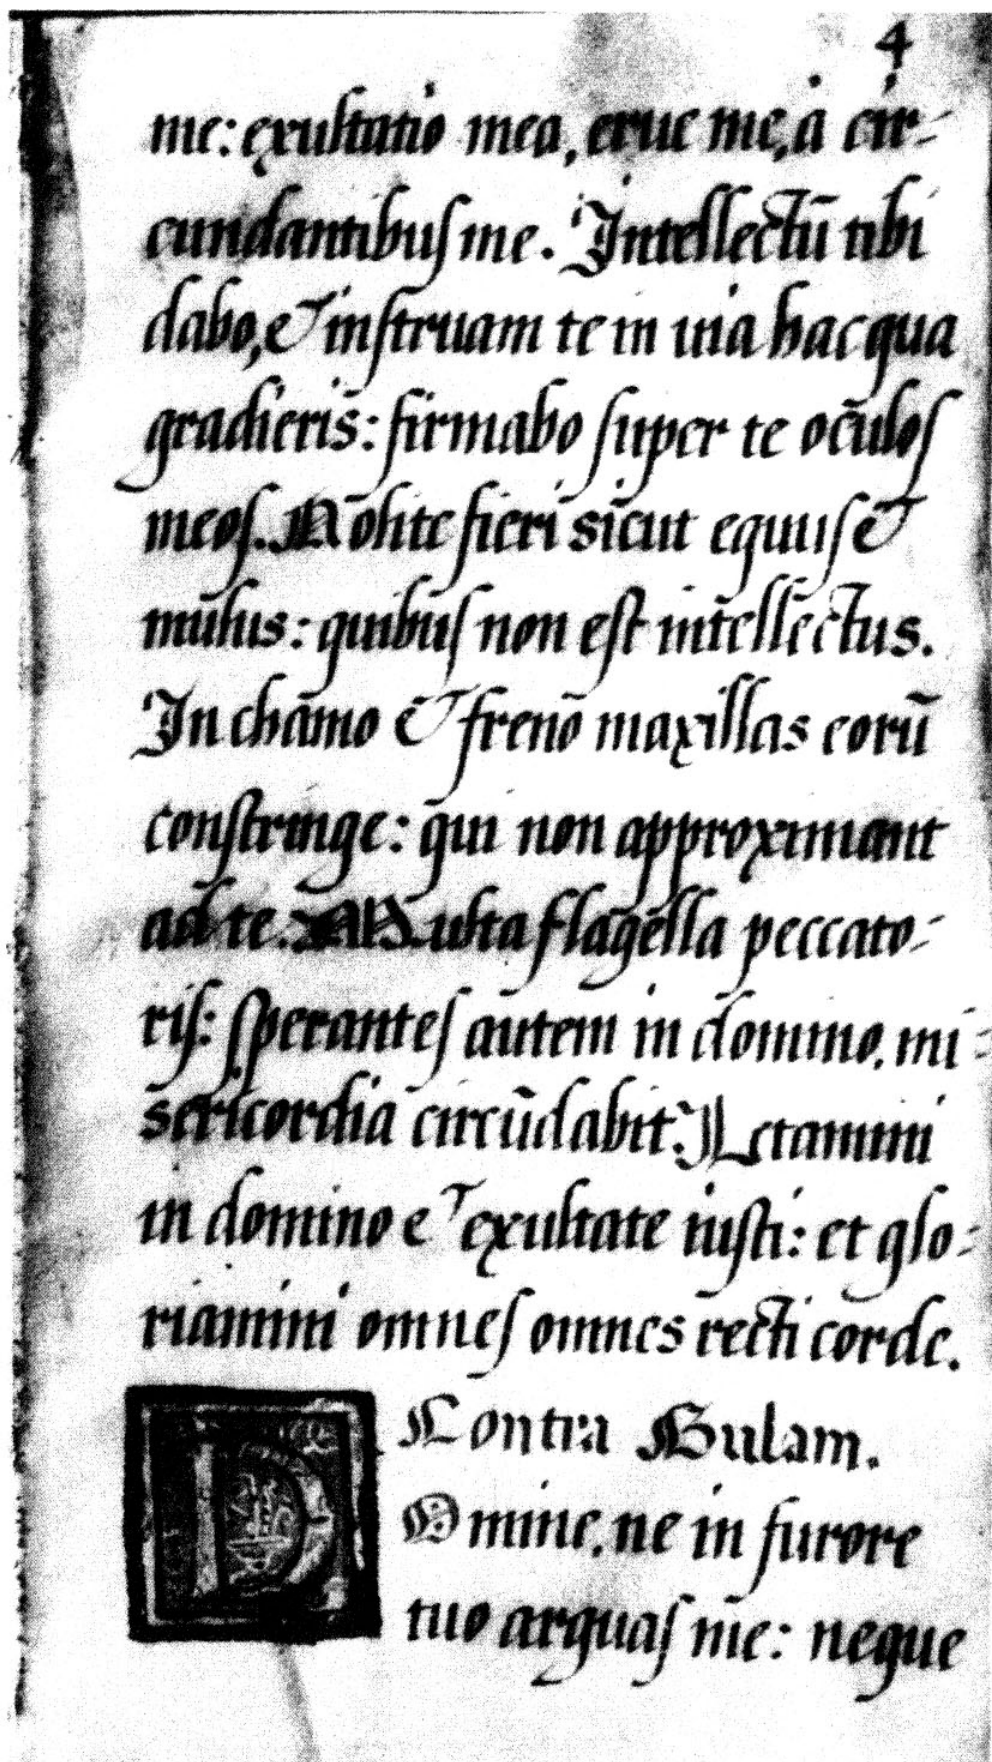 4
me: exultatio mea, erue me, à cir-
cundantibus me. Intellectū tibi
dabo, & instruam te in uia hac qua
gradieris: firmabo super te oculos
meos. Nolite fieri sicut equus &
mulus: quibus non est intellectus.
In chamo & freno maxillas eorū
constringe: qui non approximant
ad te. Multa flagella peccato-
ris: sperantes autem in domino, mi-
sericordia circūdabit. Letamini
in domino et exultate iusti: et glo-
riamini omnes omnes recti corde.
Contra Gulam.
DOmine, ne in furore
tuo arguas me: neque